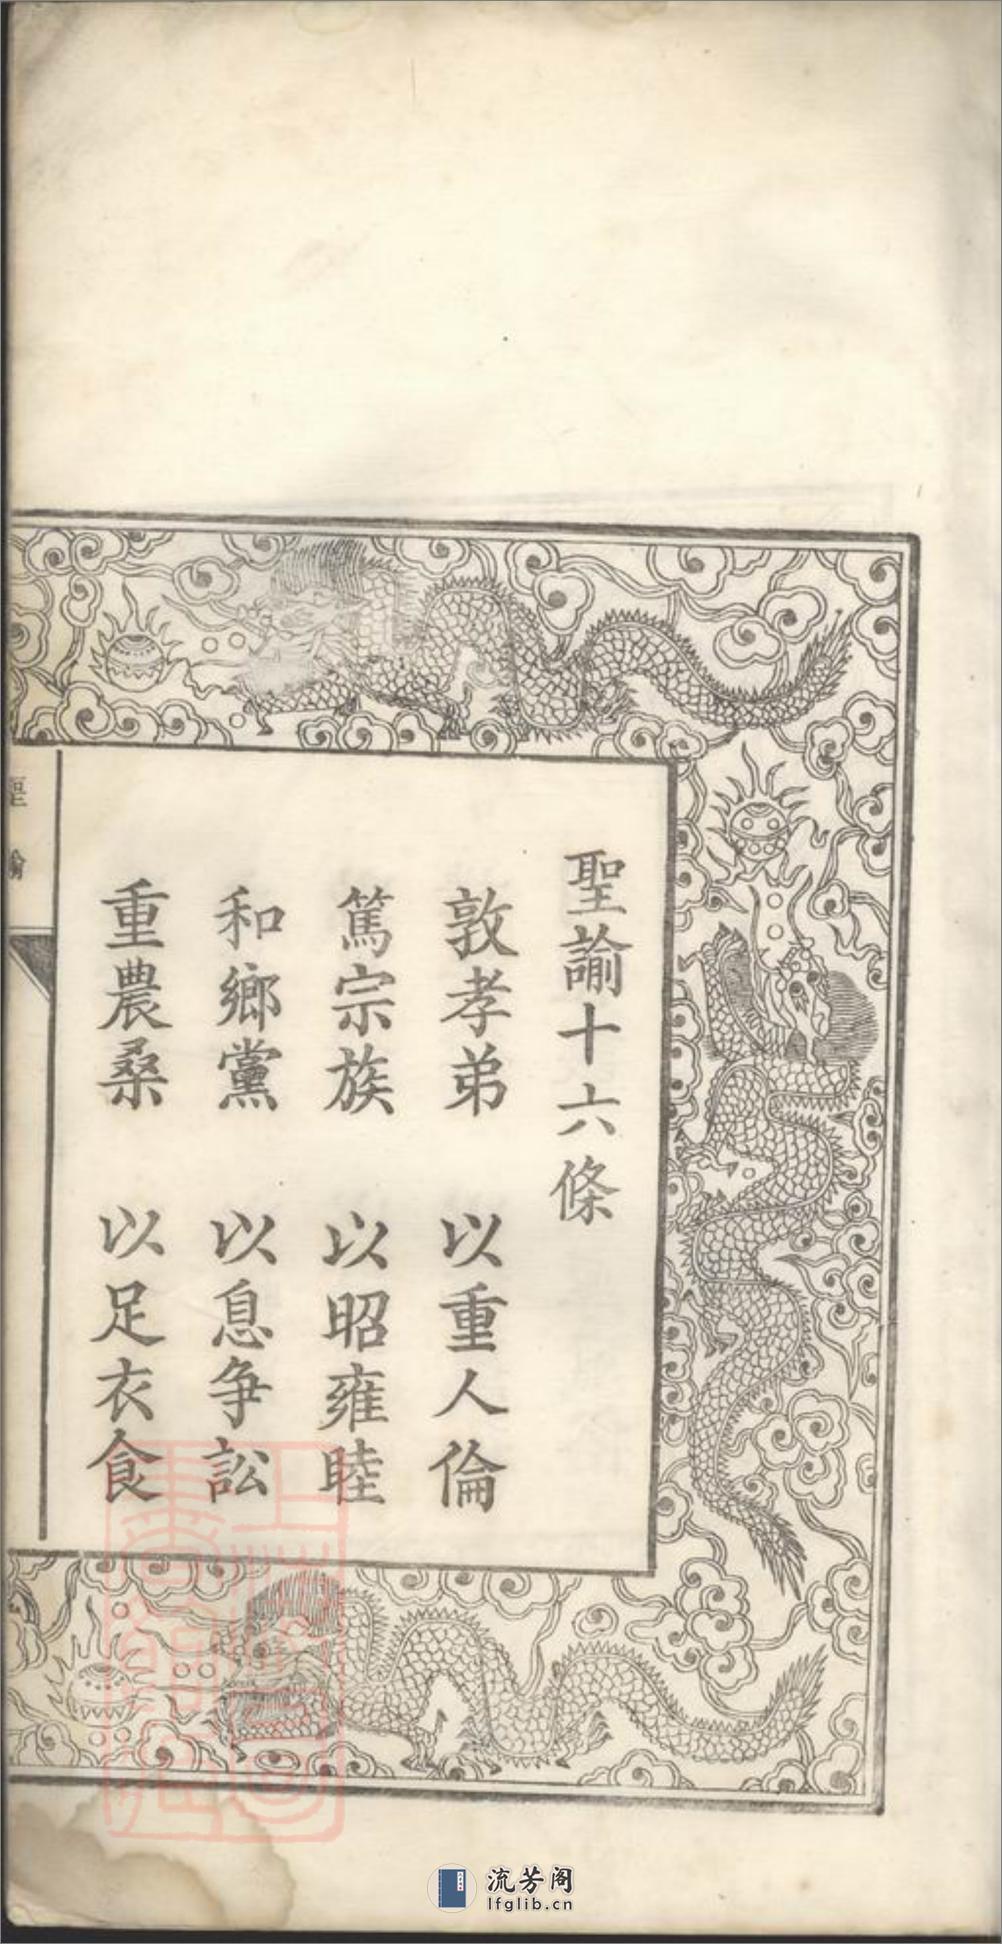 聖諭十六條
敦孝弟　以重人倫
篤宗族　以昭雍睦
和鄉黨　以息争訟
重農桑　以足衣食
流芳阁
lfglib.cn